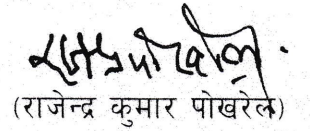 (राजेन्द्र कुमार पोखरेल)